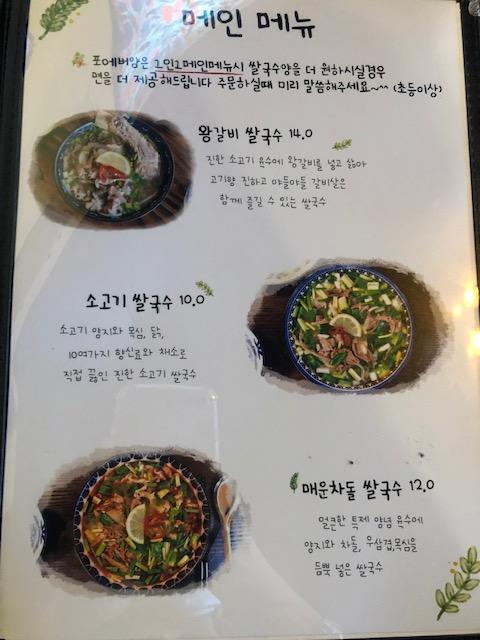 메인 메뉴
포에버맘은 2인2메인메뉴시 쌀국수양을 더 원하시실경우
면을 더 제공해드립니다 주문하실때 미리 말씀해주세요~^^ (초등이상)
왕갈비 쌀국수 14.0
진한 소고기 육수에 왕갈비를 넣고 삶아
고기향 진하고 야들야들 갈비살은
함께 즐길 수 있는 쌀국수
소고기 쌀국수 10.0
소고기 양지와 목심, 닭,
10여가지 향신료와 채소로
직접 끓인 진한 소고기 쌀국수
매운차돌 쌀국수 12.0
얼큰한 특제 양념 육수에
양지와 차돌, 우삼겹,목심을
듬뿍 넣은 쌀국수